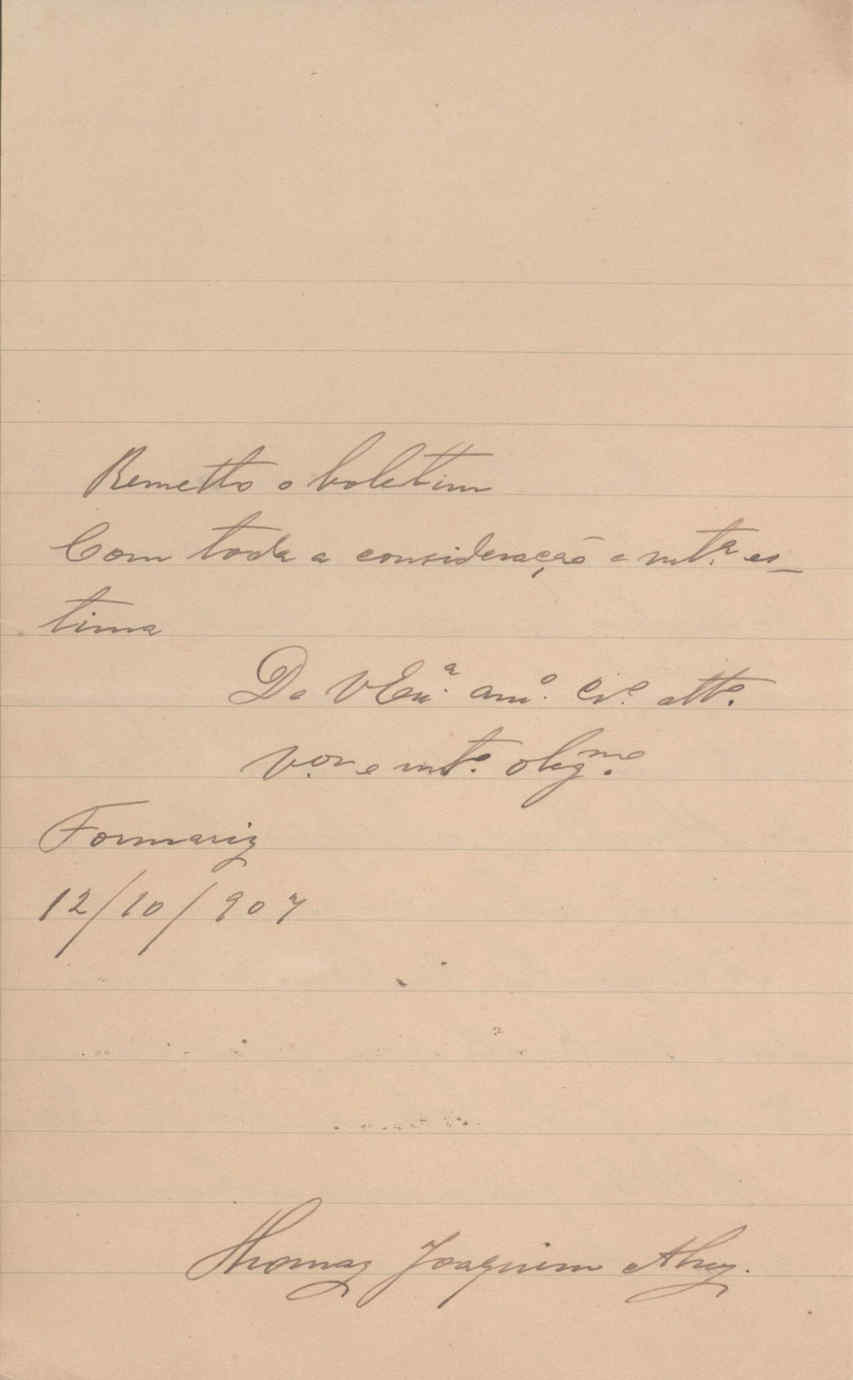 Remetto o boletim
Com toda a consideração e mt.ª es-
tima
De V Exª. amº. cr.º att.º
V.or e mt.º obig.mo
Formariz
12/10/907
Thomaz Joaquim Alvez.